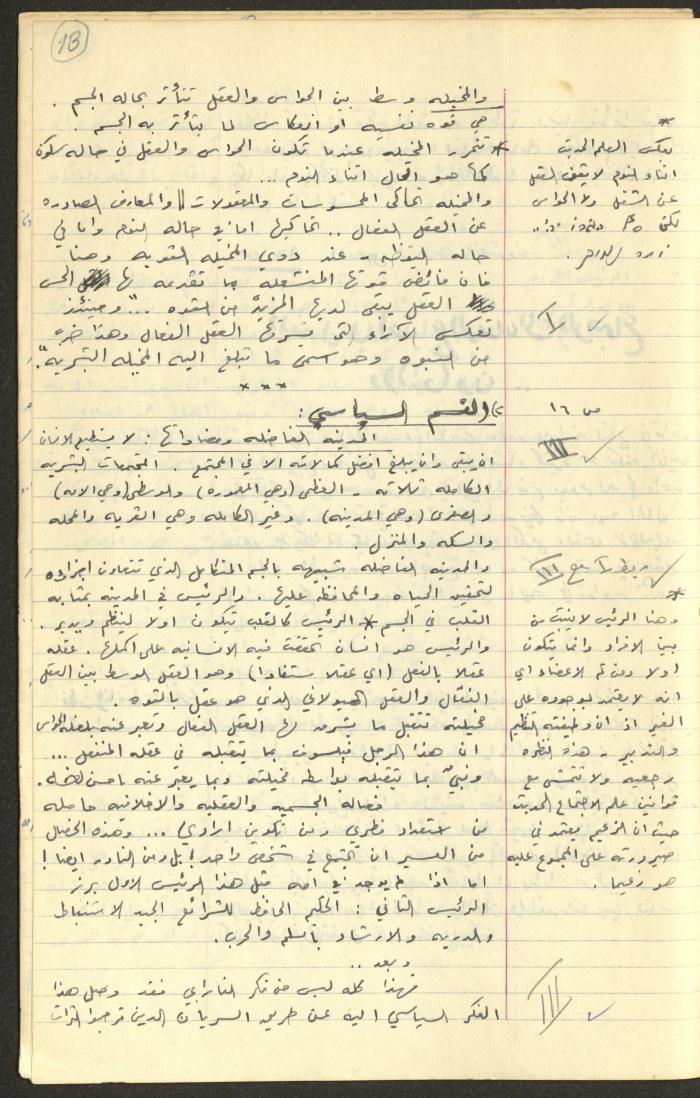 13
والمخيله وسط بين الحواس والعقل تتأثر بحاله الجسم .
هي قوه نفسيه او انعكاس لما يتأثر به الجسم .
* تتحرر المخيله عندما تكون الحواس والعقل في حاله سكون
كما هو الحال اثناء النوم ...
والمخيله تحاكي المحسوسات والمعقولات والمعارف الصادره
عن العقل الفعال .. تحاكيها اما في حاله النوم واما في
حاله اليقظه - عند ذوي المخيله القويه وهنا
فان فائض قوتها المنشغله بما تقدمه لها الحس
العقل يبقى لديها المزيد من القوه ... وحينئذ
تعكس الآراء التي يشرقها العقل الفعال وهذا ضرب
من النبوه وهو اسمى ما تبلغ اليه المخيله البشريه".
* * *
٢) القسم السياسي :
المدينه الفاضله ومضاداتها : لا يستطيع الانسان
ان يبقى وان يبلغ افضل كمالاته الا في المجتمع . المجتمعات البشريه
الكامله ثلاثه - العظمى (وهي المعموره) والوسطى (وهي الامه)
والصغرى (وهي المدينه) . وغير الكامله وهي القريه والمحله
والسكه والمنزل .
والمدينه الفاضله شبيهه بالجسم المتكامل الذي تتعاون اجزاؤه
لتحقيق الحياه والمحافظه عليها . والرئيس في المدينه بمثابه
القلب في الجسم * الرئيس كالقلب يتكون اولا لينظم ويدبر .
والرئيس هو انسان تحققت فيه الانسانيه على اكملها . عقله
عقلا بالفعل (اي عقلا مستفادا) وهو العقل الوسط بين العقل
الفعّال والعقل الهيولاني الذي هو عقل بالقوه .
مخيلته تتقبل ما يشرف لها العقل الفعال وتعبر عنه بلغه الحواس
ان هذا الرجل فيلسوف بما يتقبله في عقله المنفعل ...
ونبيّ بما يتقبله بواسطه مخيلته وبما يعبر عنه باحسن لغه .
خصاله الجسميه والعقليه والاخلاقيه حاصله
من استعداد فطري ومن تكوين ارادي ... وهذه الخصال
من العسير ان تجتمع في شخص واحد ! بل ومن النادر ايضا !
اما اذا لم يوجد في امه مثل هذا الرئيس الاول برز
الرئيس الثاني : الحكيم الحافظ للشرائع الجيد الاستنباط
والدريه والارشاد بالسلم والحرب .
وبعد ..
فهذا كله ليس من فكر الفارابي فقد وصل هذا
الفكر السياسي اليه عن طريق السريان الذين ترجموا التراث
*
بعكس العلم الحديث
اثناء النوم لا يتوقف العقل
عن الشغل ولا الحواس
I ✓
ص ١٦
III ✓
ربط مع III ✓
*
وهنا الرئيس لا ينبت من
بين الافراد وانما يتكون
اولا ومن ثم الاعضاء اي
انه لا يعتمد بوجوده على
الغير اذ ان وظيفته التنظيم
والتدبير - هذه النظره
رجعيه ولا تتمشى مع
قوانين علم الاجتماع الحديث
حيث ان الزعيم يعتمد في
صيرورته على المجموع عليه
هو زعيما .
III ✓